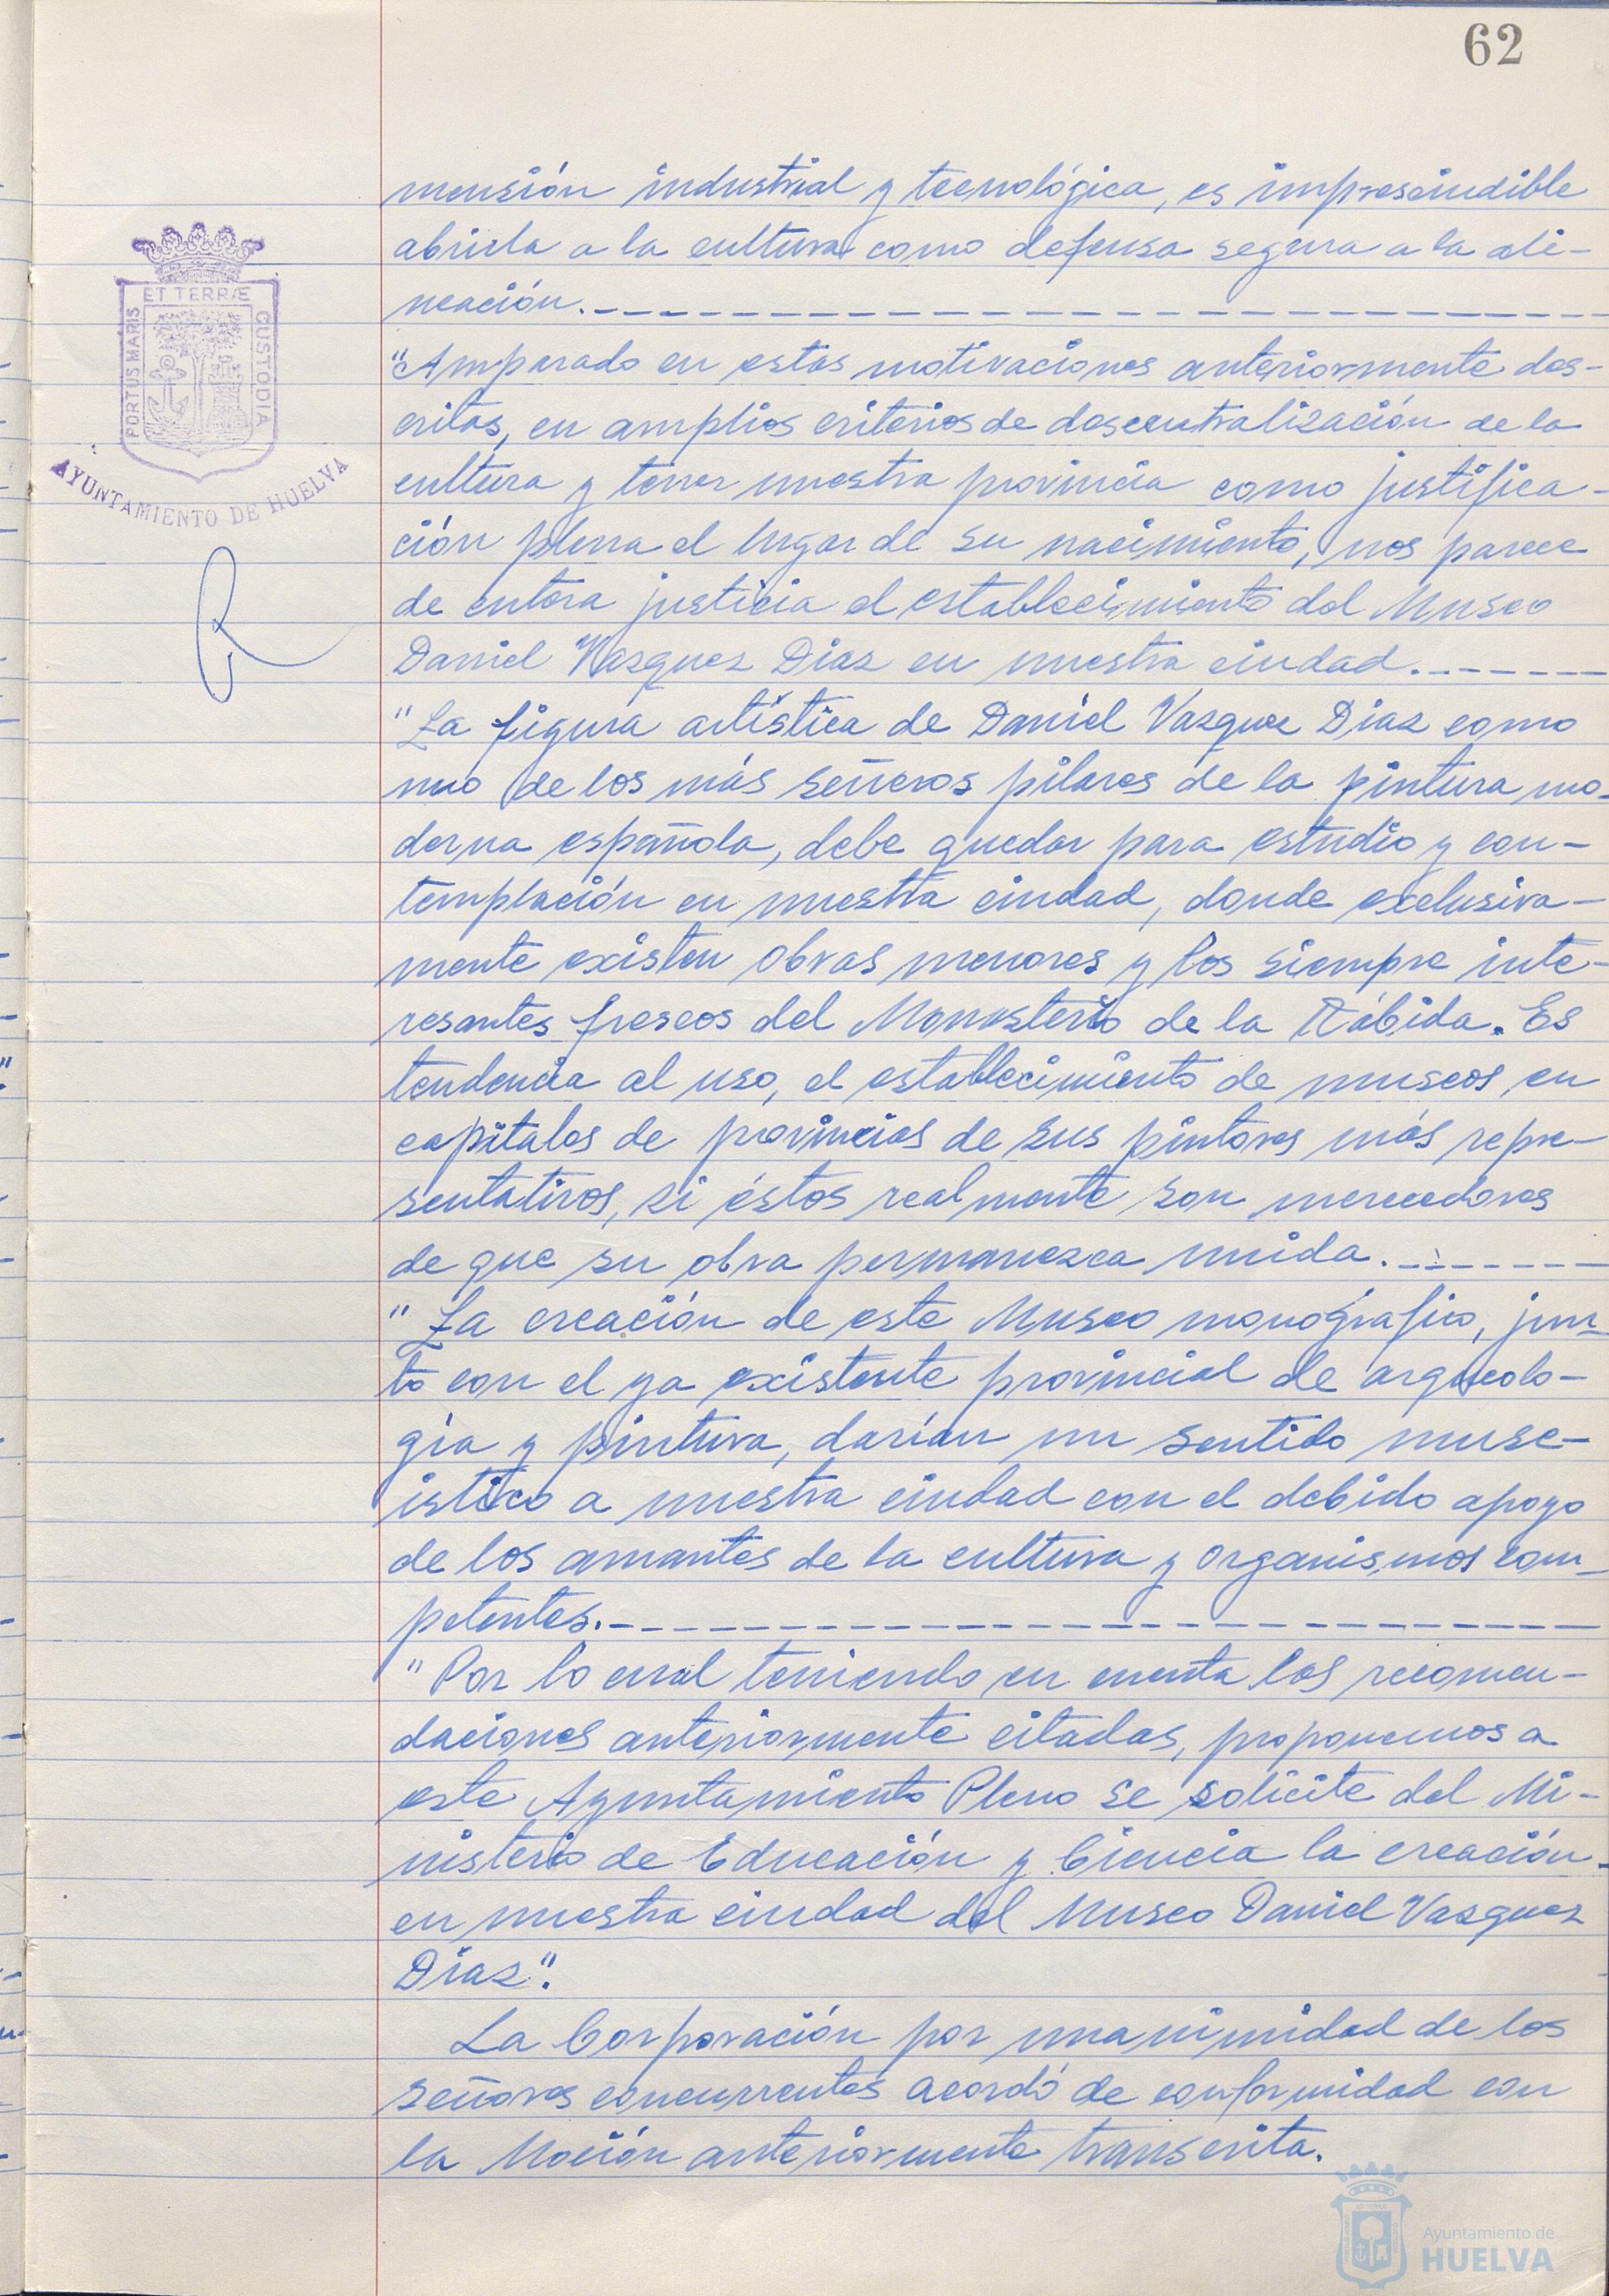 62
mensión industrial y tecnológica, es imprescindible
abrirla a la cultura como defensa segura a la ali-
neación.
"Amparado en estas motivaciones anteriormente des-
critas, en amplios criterios de descentralización de la
cultura y tener nuestra provincia como justifica-
ción plena el lugar de su nacimiento, nos parece
de entera justicia el establecimiento del Museo
Daniel Vazquez Diaz en nuestra ciudad.
"La figura artística de Daniel Vazquez Diaz como
uno de los más señeros pilares de la pintura mo-
derna española, debe quedar para estudio y con-
templación en nuestra ciudad, donde exclusiva-
mente existen obras menores y los siempre inte-
resantes frescos del Monasterio de la Rábida. Es
tendencia al uso, el establecimiento de museos en
capitales de provincias de sus pintores más repre-
sentativos, si éstos realmente son merecedores
de que su obra permanezca unida.
"La creación de este Museo monográfico, jun-
to con el ya existente provincial de arqueolo-
gía y pintura, darían un sentido muse-
istico a nuestra ciudad con el debido apoyo
de los amantes de la cultura y organismos com-
petentes.
"Por lo cual teniendo en cuenta las recomen-
daciones anteriormente citadas, proponemos a
este Ayuntamiento Pleno se solicite del Mi-
nisterio de Educación y Ciencia la creación
en nuestra ciudad del Museo Daniel Vazquez
Diaz".
La Corporación por unanimidad de los
señores concurrentes acordó de conformidad con
la Moción anteriormente transcrita.
PORTUS MARIS
ET TERRÆ
CUSTODIA
AYUNTAMIENTO DE HUELVA
Ayuntamiento de
HUELVA